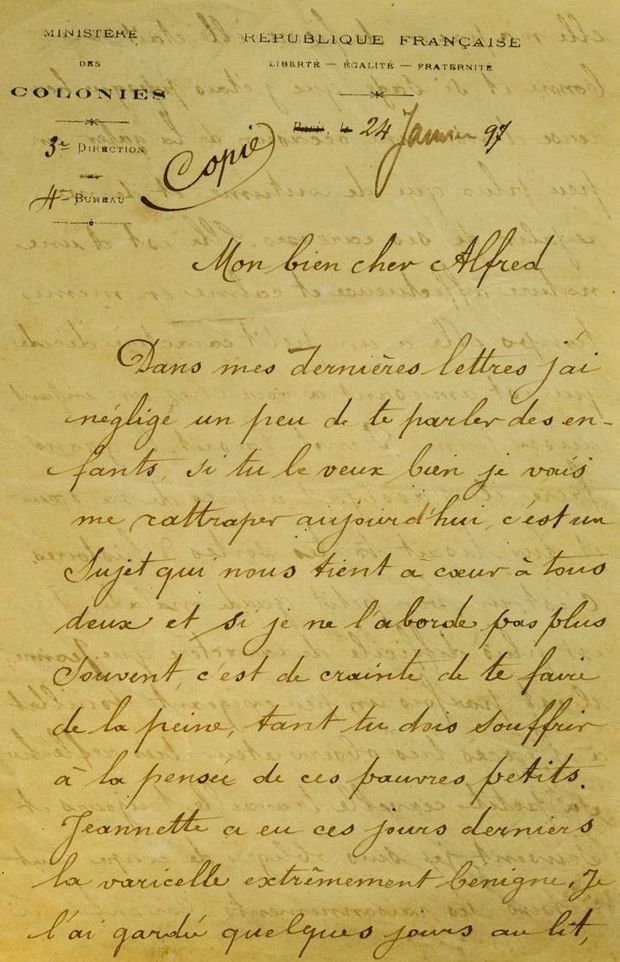 MINISTÈRE
DES
COLONIES
3e DIRECTION
4e BUREAU
RÉPUBLIQUE FRANÇAISE
LIBERTÉ — ÉGALITÉ — FRATERNITÉ
Paris, le 24 Janvier 97
Copie
Mon bien cher Alfred
Dans mes dernières lettres j'ai
négligé un peu de te parler des en-
fants, si tu le veux bien je vais
me rattraper aujourd'hui, c'est un
Sujet qui nous tient à cœur à tous
deux et si je ne l'aborde pas plus
Souvent, c'est de crainte de te faire
de la peine, tant tu dois souffrir
à la pensée de ces pauvres petits.
Jeannette a eu ces jours derniers
la varicelle extrêmement benigne. Je
l'ai gardée quelques jours au lit,